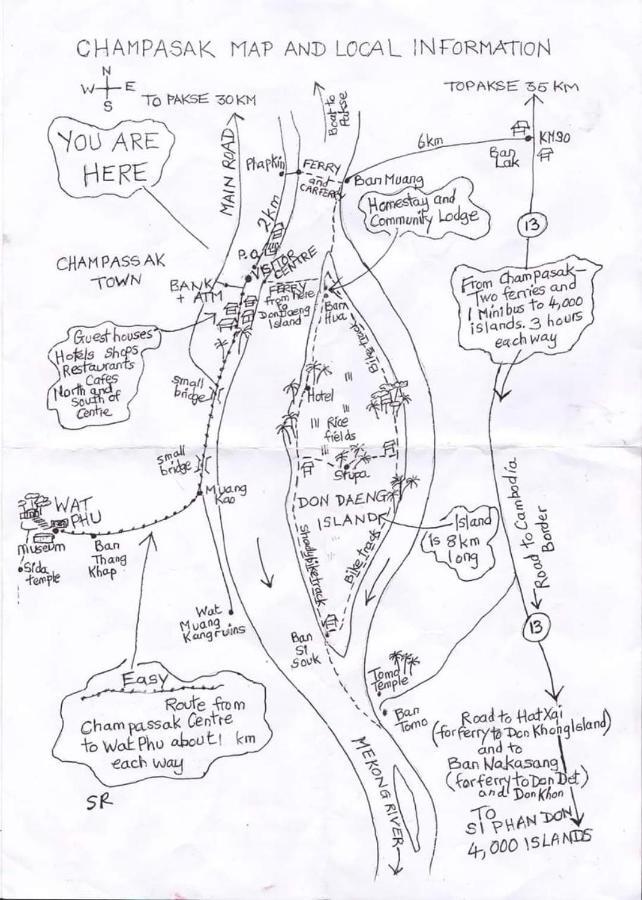 CHAMPASAK MAP AND LOCAL INFORMATION
N
W E
S
TO PAKSE 30 KM
Boat to
Pakse
TO PAKSE 35 KM
YOU ARE
HERE
MAIN ROAD
Phapkin
FERRY
and
CARFERRY
6km
Ban
Lak
KM30
Ban Muang
Homestay and
Community Lodge
2km
13
P.O.
VISITOR
CENTRE
CHAMPASSAK
TOWN
BANK
+ ATM
FERRY
from here
to
Don Daeng
Island
Ban
Hua
From Champasak-
Two ferries and
1 Minibus to 4,000
islands. 3 hours
each way
Guesthouses
Hotels shops
Restaurants
Cafes
North and
South of
Centre
Bike track
small
bridge
Hotel
Rice
fields
small
bridge
Stupa
Muang
Kao
WAT
PHU
museum
Sida
temple
Ban
Thang
Khap
DON DAENG
ISLAND
Island
is 8km
long
Road to Cambodia
Border
Shady bike track
Bike track
Wat
Muang
Kang ruins
Ban
Si
Souk
13
Tomo
Temple
Ban
Tomo
Easy
Route from
Champassak Centre
to Wat Phu about 1 km
each way
SR
MEKONG RIVER
Road to Hat Xai
(for ferry to Don Khong Island)
and to
Ban Nakasang
(for ferry to Don Det)
and Don Khon
TO
SI PHAN DON
4,000 ISLANDS